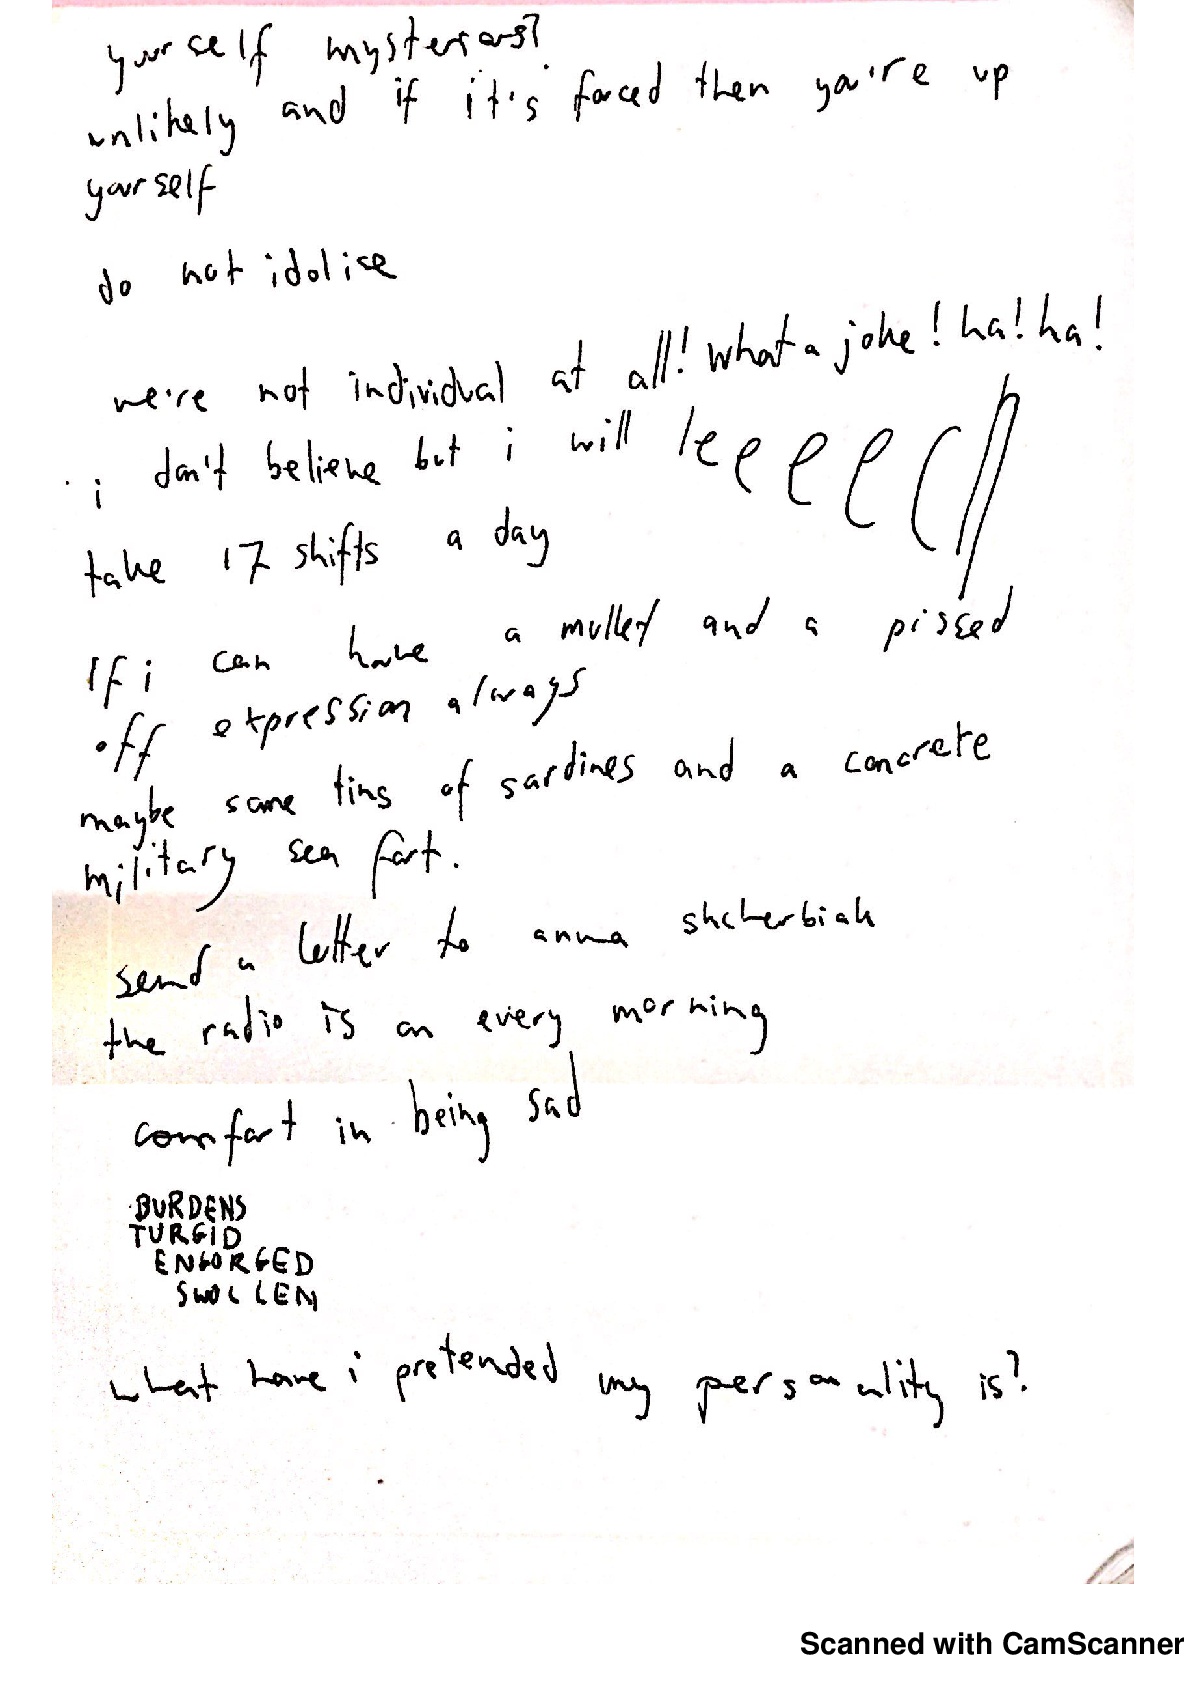 yourself mysterious?
unlikely and if it's forced then you're up
yourself
do not idolise
we're not individual at all! what a joke! ha! ha!
i don't believe but i will
take 17 shifts a day
If i can have a mullet and a pissed
off expression always
maybe some tins of sardines and a concrete
military sea fort.
send a letter to anna shcherbiak
the radio is on every morning
comfort in being sad
BURDENS
TURGID
ENGORGED
SWOLLEN
what have i pretended my personality is?
Scanned with CamScanner